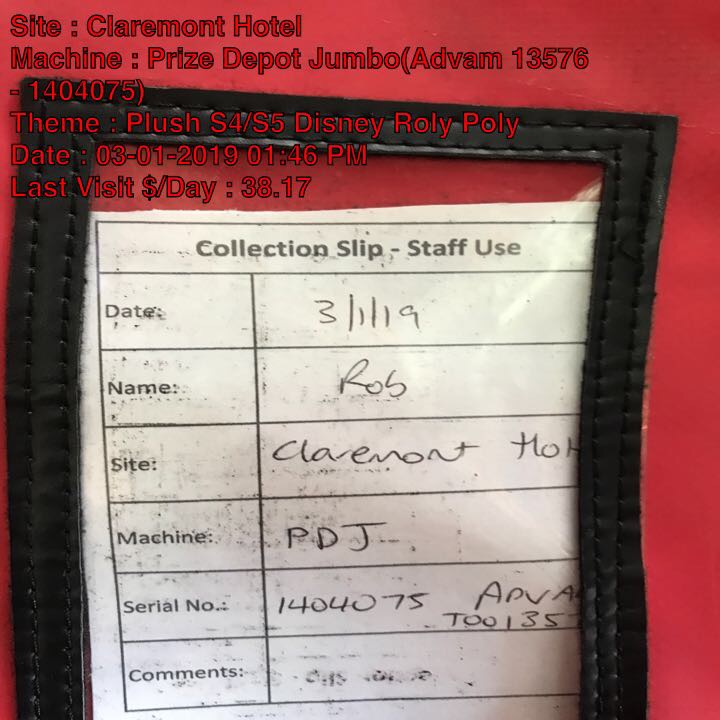 Site : Claremont Hotel
Machine : Prize Depot Jumbo(Advam 13576
- 1404075)
Theme : Plush S4/S5 Disney Roly Poly
Date : 03-01-2019 01:46 PM
Last Visit $/Day : 38.17
Collection Slip - Staff Use
Date: 3/1/19
Name: Rob
Site: Claremont Hot
Machine: PDJ
Serial No.: 1404075 ADVA
T00135
Comments: